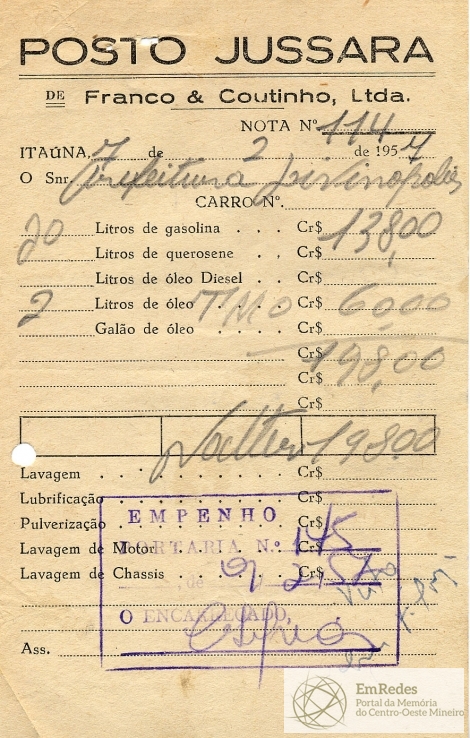 POSTO JUSSARA
DE Franco & Coutinho, Ltda.
NOTA Nº 1147
ITAÚNA, 7 de 2 de 1957
O Snr. Prefeitura Divinopolis
CARRO Nº.
20 Litros de gasolina . . . Cr$ 138,00
Litros de querosene . . Cr$
Litros de óleo Diesel . Cr$
2 Litros de óleo . . . Cr$ 60,00
Galão de óleo . . . . Cr$
Cr$ 198,00
Cr$
Cr$
Walter 198,00
Lavagem . . . . . . . . Cr$
Lubrificação . . . . . . . Cr$
Pulverização . . . . . . . Cr$
Lavagem de Motor . . . . . Cr$
Lavagem de Chassis . . . . . Cr$
Ass.
EMPENHO
PORTARIA N.º 145
9 de 2 57
O ENCARREGADO,
EmRedes
Portal da Memória
do Centro-Oeste Mineiro